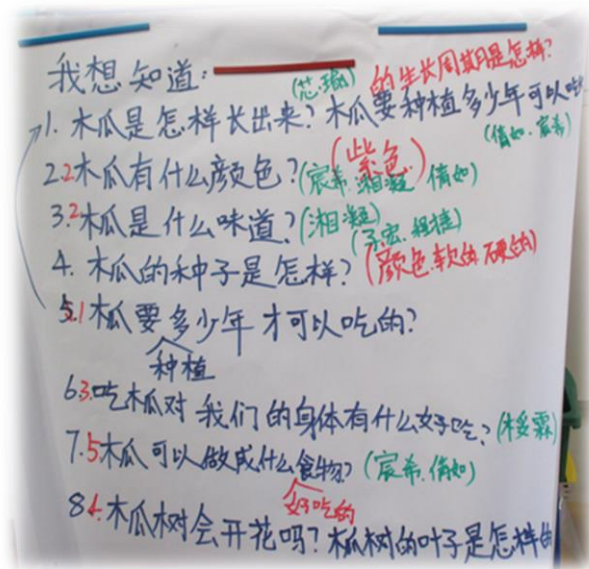 我想知道：
(芯瑜) 的生长周期是怎样?
1. 木瓜是怎样长出来? 木瓜要种植多少年可以吃
(倩如.宸希)
2.2木瓜有什么颜色?(宸希.湘凝 倩如)
(紫色)
3.2木瓜是什么味道?(湘凝)
4. 木瓜的种子是怎样? (颜色.软的.硬的)
5.1木瓜要多少年才可以吃的?
种植
6.3.吃木瓜对我们的身体有什么好吃?
7.5木瓜可以做成什么食物? (宸希.倩如)
好吃的
8.4.木瓜树会开花吗? 木瓜树的叶子是怎样的